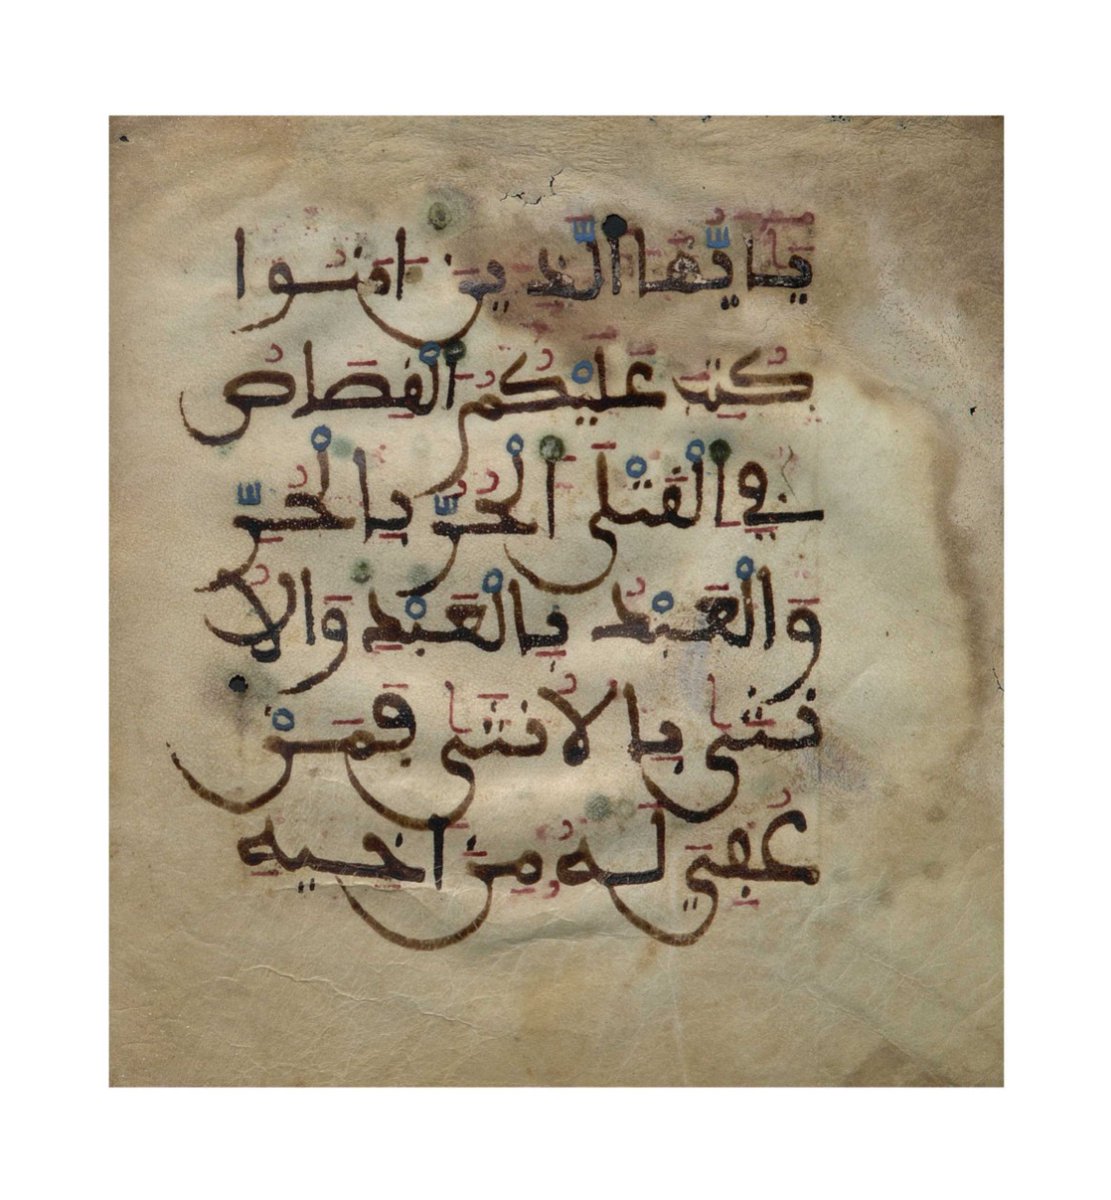 يَٰأَيُّهَا الَّذِينَ ءَامَنُوا
كُتِبَ عَلَيْكُمُ الْقِصَاصُ
فِي الْقَتْلَى الْحُرُّ بِالْحُرِّ
وَالْعَبْدُ بِالْعَبْدِ وَالُا
نثَى بِالُانثَى فَمَنْ
عُفِيَ لَهُ مِنَ اَخِيهِ